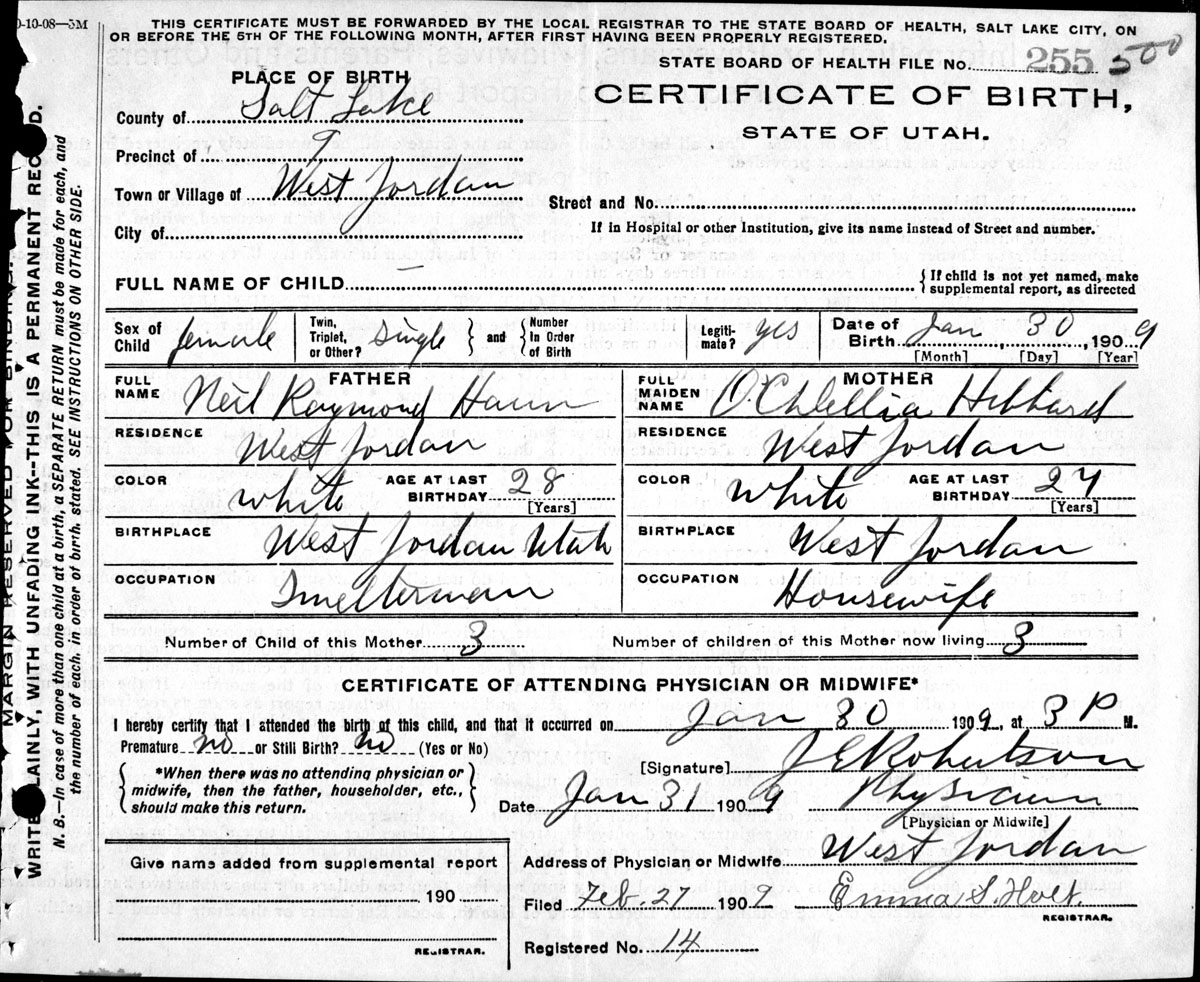 0-10-08—5M
THIS CERTIFICATE MUST BE FORWARDED BY THE LOCAL REGISTRAR TO THE STATE BOARD OF HEALTH, SALT LAKE CITY, ON
OR BEFORE THE 5TH OF THE FOLLOWING MONTH, AFTER FIRST HAVING BEEN PROPERLY REGISTERED.
STATE BOARD OF HEALTH FILE No. 255 500
PLACE OF BIRTH
CERTIFICATE OF BIRTH,
STATE OF UTAH.
County of Salt Lake
Precinct of 9
Town or Village of West Jordan
Street and No.
City of
If in Hospital or other Institution, give its name instead of Street and number.
FULL NAME OF CHILD —
{ If child is not yet named, make
supplemental report, as directed
Sex of Child female
Twin, Triplet, or Other? single } and { Number In Order of Birth
Legiti-mate? yes
Date of Birth Jan 30, 1909
[Month] [Day] [Year]
FATHER
FULL NAME Neil Raymond Haun
RESIDENCE West Jordan
COLOR white AGE AT LAST BIRTHDAY 28
[Years]
BIRTHPLACE West Jordan Utah
OCCUPATION Smelterman
MOTHER
FULL MAIDEN NAME O'Chlellia Hibbard
RESIDENCE West Jordan
COLOR white AGE AT LAST BIRTHDAY 27
[Years]
BIRTHPLACE West Jordan
OCCUPATION Housewife
Number of Child of this Mother 3 Number of children of this Mother now living 3
CERTIFICATE OF ATTENDING PHYSICIAN OR MIDWIFE*
I hereby certify that I attended the birth of this child, and that it occurred on Jan 30 1909, at 3 P M.
Premature no or Still Birth? no (Yes or No)
[Signature] J E Robertson
{ *When there was no attending physician or
midwife, then the father, householder, etc.,
should make this return. }
Date Jan 31 1909 Physician
[Physician or Midwife]
Address of Physician or Midwife West Jordan
Give name added from supplemental report
190
REGISTRAR.
Filed Feb. 27 1909 Emma S. Holt.
REGISTRAR.
Registered No. 14
MARGIN RESERVED FOR BINDING.
WRITE PLAINLY, WITH UNFADING INK--THIS IS A PERMANENT RECORD.
N. B.—In case of more than one child at a birth, a SEPARATE RETURN must be made for each, and
the number of each, in order of birth, stated. SEE INSTRUCTIONS ON OTHER SIDE.